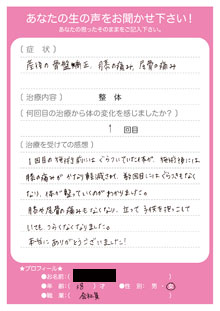 あなたの生の声をお聞かせ下さい！
あなたの思ったそのままをご記入下さい。
〔症 状〕
産後の骨盤矯正、膝の痛み、尾骨の痛み
〔治療内容〕 整 体
〔何回目の治療から体の変化を感じましたか？〕
1 回目
〔治療を受けての感想〕
1回目の施術前にはぐらついていた体が、施術後には
膝の痛みがかなり軽減され、数回目にはぐらつきもなく
なり、体が整っていくのがわかりました。
膝や尾骨の痛みもなくなり、立って子供を抱っこして
いても、つらくなくなりました。
本当にありがとうございました！
★プロフィール★
●お名前：（ ）
●年 齢：（ ）才 ●性 別：男・女
●職 業：（会社員 ）